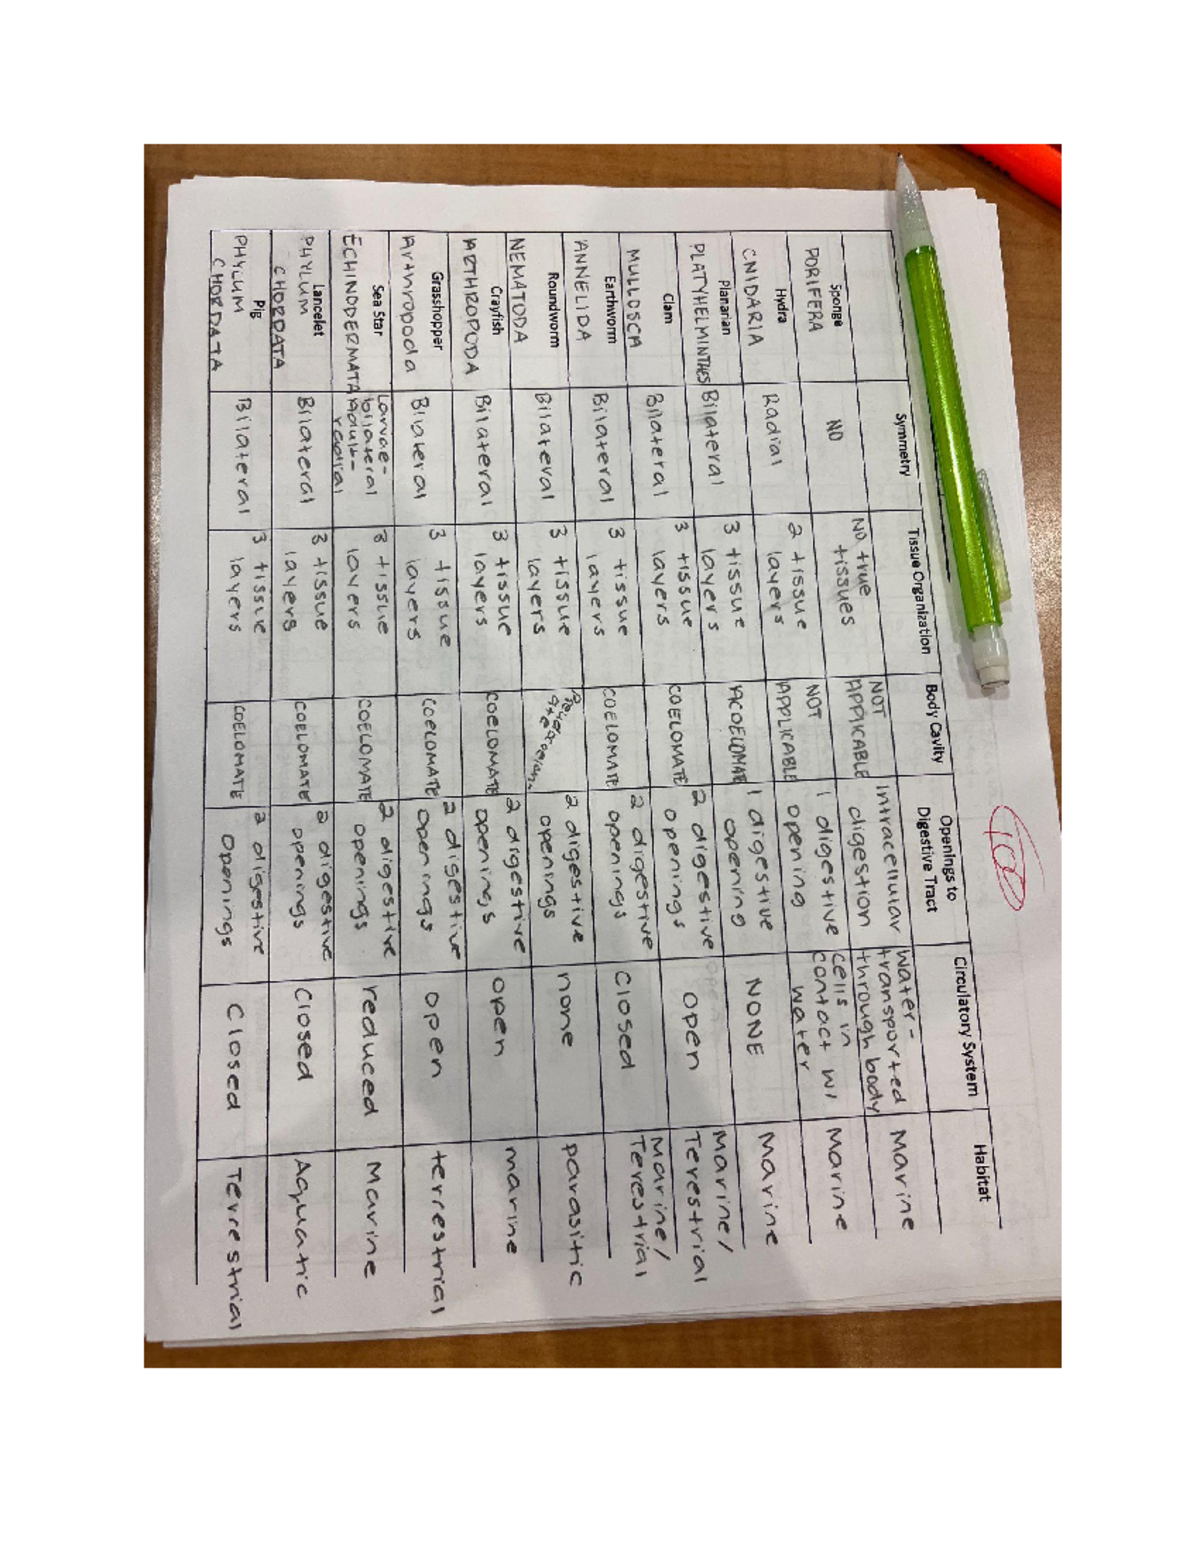 100
Symmetry
Tissue Organization
Body Cavity
Openings to
Digestive Tract
Circulatory System
Habitat
Sponge
PORIFERA
NO
NO true
tissues
NOT
APPLICABLE
intracellular
digestion
water-
transported
through body
Marine
Hydra
CNIDARIA
Radial
2 tissue
layers
NOT
APPLICABLE
1 digestive
opening
cells in
contact w/
water
Marine
Planarian
PLATYHELMINTHES
Bilateral
3 tissue
layers
ACOELOMATE
1 digestive
opening
NONE
Marine
Clam
MULLOSCA
Bilateral
3 tissue
layers
COELOMATE
2 digestive
openings
open
Marine/
Terestrial
Earthworm
ANNELIDA
Bilateral
3 tissue
layers
COELOMATE
2 digestive
openings
Closed
Marine/
Terestrial
Roundworm
NEMATODA
Bilateral
3 tissue
layers
2 digestive
openings
none
parasitic
Crayfish
ARTHROPODA
Bilateral
3 tissue
layers
COELOMATE
2 digestive
openings
open
marine
Grasshopper
Arthropoda
Bilateral
3 tissue
layers
COELOMATE
2 digestive
openings
open
terrestrial
Sea Star
ECHINODERMATA
Larvae-
bilateral
Adult-
radial
3 tissue
layers
COELOMATE
2 digestive
openings
reduced
Marine
Lancelet
PHYLUM
CHORDATA
Bilateral
3 tissue
layers
COELOMATE
2 digestive
openings
Closed
Aquatic
Pig
PHYLUM
CHORDATA
Bilateral
3 tissue
layers
COELOMATE
2 digestive
openings
Closed
Terrestrial